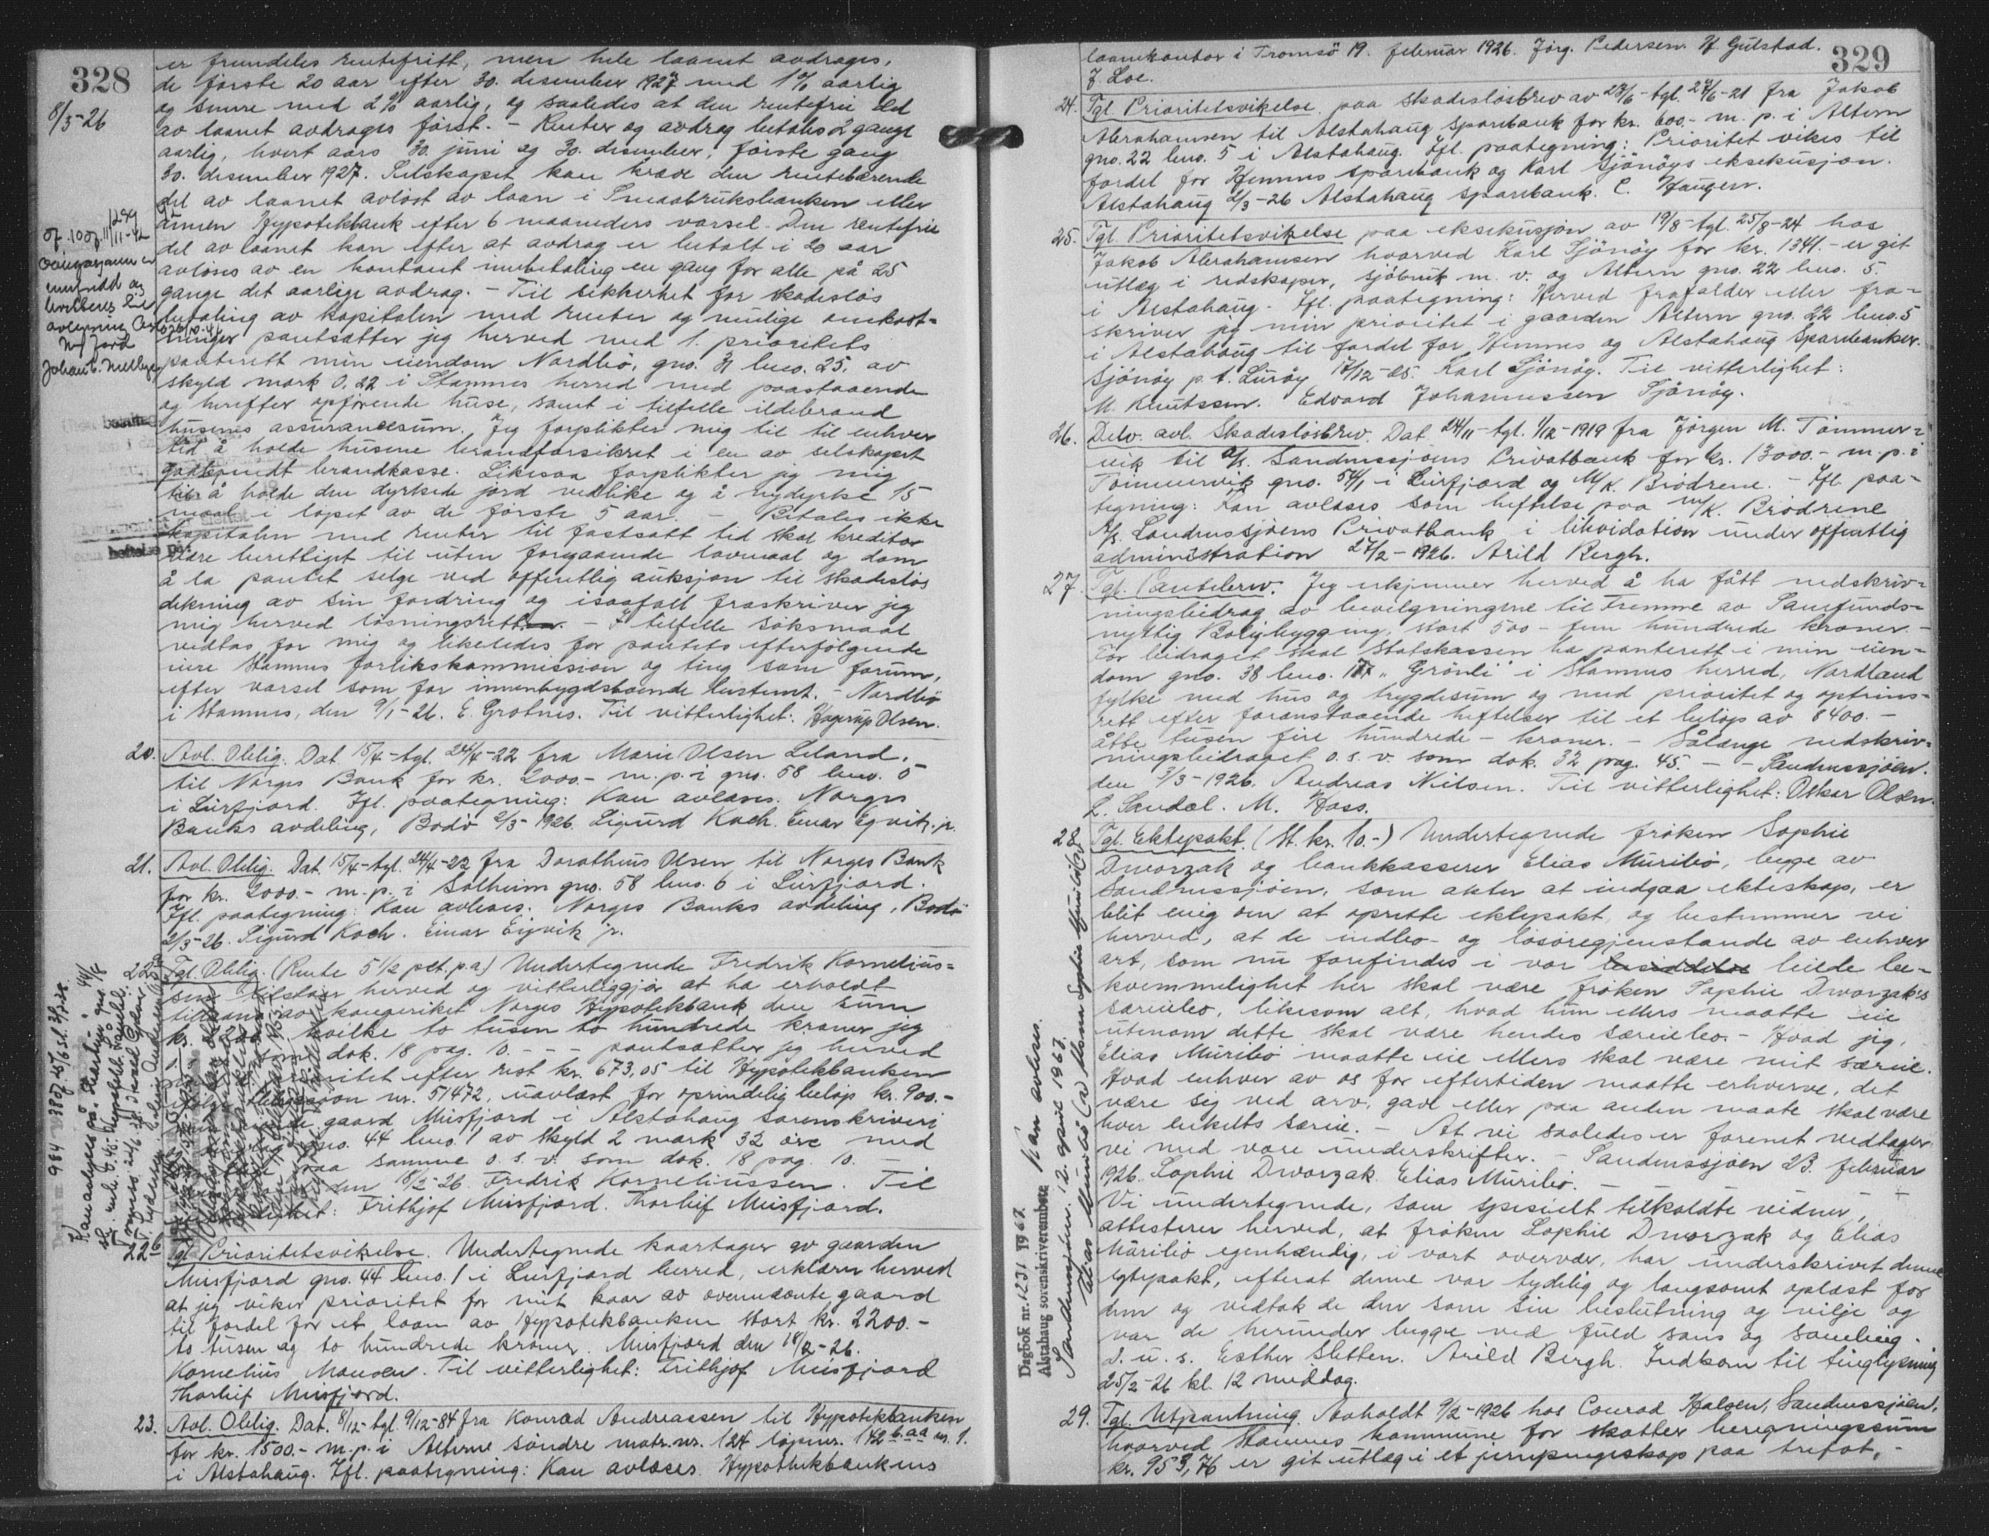 328
8/3-26
er fremdeles rentefritt, men hele laanet avdrages,
de förste 20 aar efter 30. desember 1927 med 1% aarlig
og senere med 2% aarlig, og saaledes at den rentefrie del
av laanet avdrages först. - Renter og avdrag betales 2 gange
aarlig, hvert aars 30. juni og 30. desember, förste gang
30. desember 1927. Selskapet kan kræve den rentebærende
del av laanet avlöst av laan i Smaabruksbanken eller
annen Hypotekbank efter 6 maaneders varsel. Den rentefrie
del av laanet kan efter at avdrag er betalt i 20 aar
avlöses av en kontant innbetaling en gang for alle på 25
gange det aarlige avdrag. - Til sikkerhet for skadeslös
betaling av kapitalen med renter og mulige omkost-
ninger pantsætter jeg herved med 1. prioritets
panterett min eiendom Nordbö, gno. 31 bno. 25, av
skyld mark 0,22 i Stamnes herred med paastaaende
og herefter opförende huse, samt i tilfelle ildebrand
husenes assurancesum. Jeg forplikter mig til til enhver
tid å holde husene brandforsikret i en av selskapet
godkjendt brandkasse. Likesaa forplikter jeg mig
til å holde den dyrkede jord vedlike og å nydyrke 15
maal i löpet av de förste 5 aar. - Betales ikke
kapitalen med renter til fastsatt tid skal kreditor
være berettiget til uten foregaaende lovmaal og dom
å la pantet selge ved offentlig auksjon til skadeslös
dekning av sin fordring og isaafall fraskriver jeg
mig herved lösningsretten. - I tilfelle söksmaal
vedtas for mig og likeledes for pantets efterfölgende
eiere Stamnes forlikskommission og ting som forum,
efter varsel som for innenbygdsboende bestemt. - Nordbö
i Stamnes, den 9/1-26. E. Grotnes. Til vitterlighet: Hagerup Olsen.
20. Avl. Oblig. Dat 15/4-tgl. 24/4-22 fra Marie Olsen Leland
til Norges Bank for kr. 2000.- m. p. i gno. 58 bno. 5
i Leirfjord. Ifl. paategning: Kan avlöses. Norges
Banks avdeling, Bodö 2/3-1926. Sigurd Koch. Einar Eyvik. p.
21. Avl. Oblig. Dat. 15/4-tgl. 24/4-22 fra Dorotheus Olsen til Norges Bank
for kr. 2000.- m. p. i Solheim gno. 58 bno. 6 i Leirfjord.
Ifl. paategning: Kan avlöses. Norges Banks avdeling, Bodö
2/3-26. Sigurd Koch. Einar Eyvik p.
22a Tgl. Oblig. (Rente 5 1/2 pct. p.a.) Undertegnede Fredrik Kornelius-
sen tilstaar herved og vitterliggjör at ha erholdt
tillaans av kongeriket Norges Hypotekbank den sum
kr. 2200 hvilke to tusen to hundrede kroner jeg
dok. 18 pag. 10. - - - pantsætter jeg herved
prioritet efter rest kr. 673,05 til Hypotekbanken
obligasjon nr. 51472, uavlöst for oprindelig belöp kr. 900.-
gaard Meisfjord i Alstahaug sorenskriveri
gno. 44 bno. 1 av skyld 2 mark 32 öre med
paa samme o. s. v. som dok. 18 pag. 10. -
den 18/2-26. Fredrik Korneliussen. Til
vitterlighet: Frithjof Meisfjord. Thorleif Meisfjord.
22b Tgl. Prioritetsvikelse. Undertegnede kaartager av gaarden
Meisfjord gno. 44 bno. 1 i Leirfjord herred, erklærer herved
at jeg viker prioritet for mit kaar av ovennævnte gaard
til fordel for et laan av Hypotekbanken stort kr. 2200.-
to tusen og to hundrede kroner. Meisfjord den 18/2-26.
Kornelius Monsen. Til vitterlighet: Frithjof Meisfjord
Thorleif Meisfjord.
23. Avl. Oblig. Dat. 8/12-tgl. 9/12-84 fra Konrad Andreassen til Hypotekbanken
for kr. 1500.- m. p. i Alterne söndre matr. nr. 124 löpenr. 142 b aa nr. 1.
i Alstahaug. Ifl. paategning: Kan avlöses. Hypothekbankens
329
laanekontor i Tromsö 19. februar 1926. Jörg. Pedersen. H. Gulstad.
J. Loe.
24. Tgl. Prioritetsvikelse paa skadeslösbrev av 27/6-tgl. 27/6-21 fra Jakob
Abrahamsen til Alstahaug sparebank for kr. 600.- m. p. i Altern
gno. 22 bno. 5 i Alstahaug. Ifl. paategning: Prioritet vikes til
fordel for Hemnes sparebank og Karl Sjönöys eksekusjon.
Alstahaug 2/3-26 Alstahaug sparebank. C. Haugen.
25. Tgl. Prioritetsvikelse paa eksekusjon av 19/8-tgl. 25/8-24 hos
Jakob Abrahamsen hvorved Karl Sjönöy for kr. 1341.- er git
utlæg i redskaper, sjöbruk m. v. og Altern gno. 22 bno. 5.
i Alstahaug. Ifl. paategning: Herved frafalder eller fra-
skriver jeg min prioritet i gaarden Altern gno. 22 bno. 5
i Alstahaug til fordel for Hemnes og Alstahaug Sparebanker.
Sjönöy p. t. Luröy 17/12-25. Karl Sjönöy. Til vitterlighet:
M. Knutssen. Edvard Johannessen Sjönöy.
26. Delv. avl. Skadeslösbrev. Dat. 24/11-tgl. 1/12-1919 fra Jörgen M. Tömmer-
vik til A/S. Sandnessjöens Privatbank for kr. 13000.- m. p. i
Tömmervik gno. 54/1 i Leirfjord og M/K. Brödrene. - Ifl. paa-
tegning: Kan avlöses som heftelse paa M/K. Brödrene
A/S. Sandnessjöens Privatbank i likvidation under offentlig
administration 27/2-1926. Arild Bergh.
27. Tgl. Pantebrev. Jeg erkjenner herved å ha fått nedskriv-
ningsbidrag av bevilgningerne til Fremme av Samfunds-
nyttig Boligbygging, stort 500 - fem hundrede kroner. -
For bidraget skal Statskassen ha panterett i min eien-
dom gno. 38 bno. 117 "Grönli" i Stamnes herred, Nordland
fylke med hus og byggesum og med prioritet og optrins-
rett efter foranstaaende heftelser til et belöp av 8400.-
åtte tusen fire hundrede - kroner. - Sålænge nedskriv-
ningsbidraget o. s. v. som dok. 32 pag. 45. - - Sandnessjöen.
den 5/3-1926. Andreas Nilsen. Til vitterlighet: Oskar Olsen.
L. Sandal. M. Hass.
28. Tgl. Ektepakt. (St. kr. 10.-) Undertegnede fröken Sophie
Dworzak og bankkasserer Elias Müribö, begge av
Sandnessjöen, som akter at indgaa ekteskap, er
blit enig om at oprette ektepakt, og bestemmer vi
herved, at de indbo- og lösöregjenstande av enhver
art, som nu forefindes i vor leiede be-
kvemmelighet her skal være fröken Sophie Dworzak's
særeiebo, likesom alt, hvad hun ellers maatte eie
utenom dette skal være hendes særeiebo. - Hvad jeg,
Elias Müribö maatte eie ellers skal være mit særeie.
Hvad enhver av os for eftertiden maatte erhverve, det
være sig ved arv, gave eller paa anden maate skal være
hver enkelts særeie. - At vi saaledes er forenet vedtager
vi med vore underskrifter. - Sandnessjöen 23. februar
1926. Sophie Dworzak. Elias Müribö. -
Vi undertegnede, som spesielt tilkaldte vidner,
attesterer herved, at fröken Sophie Dworzak og Elias
Müribö egenhændig, i vort overvær, har underskrivet denne
egtepakt, efterat denne var tydelig og langsomt oplæst for
dem og vedtok de den som sin beslutning og vilje og
var de herunder begge ved fuld sans og samling.
D. u. s. Esther Sletten. Arild Bergh. Indkom til tinglysning
25/2-26 kl. 12 middag.
29. Tgl. Utpantning. Avholdt 9/2-1926 hos Conrad Halsen, Sandnessjöen,
hvorved Stamnes kommune for skatter beregningssum
kr. 953,76 er git utlæg i et jernpengeskap paa trefot,-
Dagbok nr. 1231 1967. Kan avlöses.
Alstahaug sorenskriverembete
Sandnessjöen. 12 april 1967.